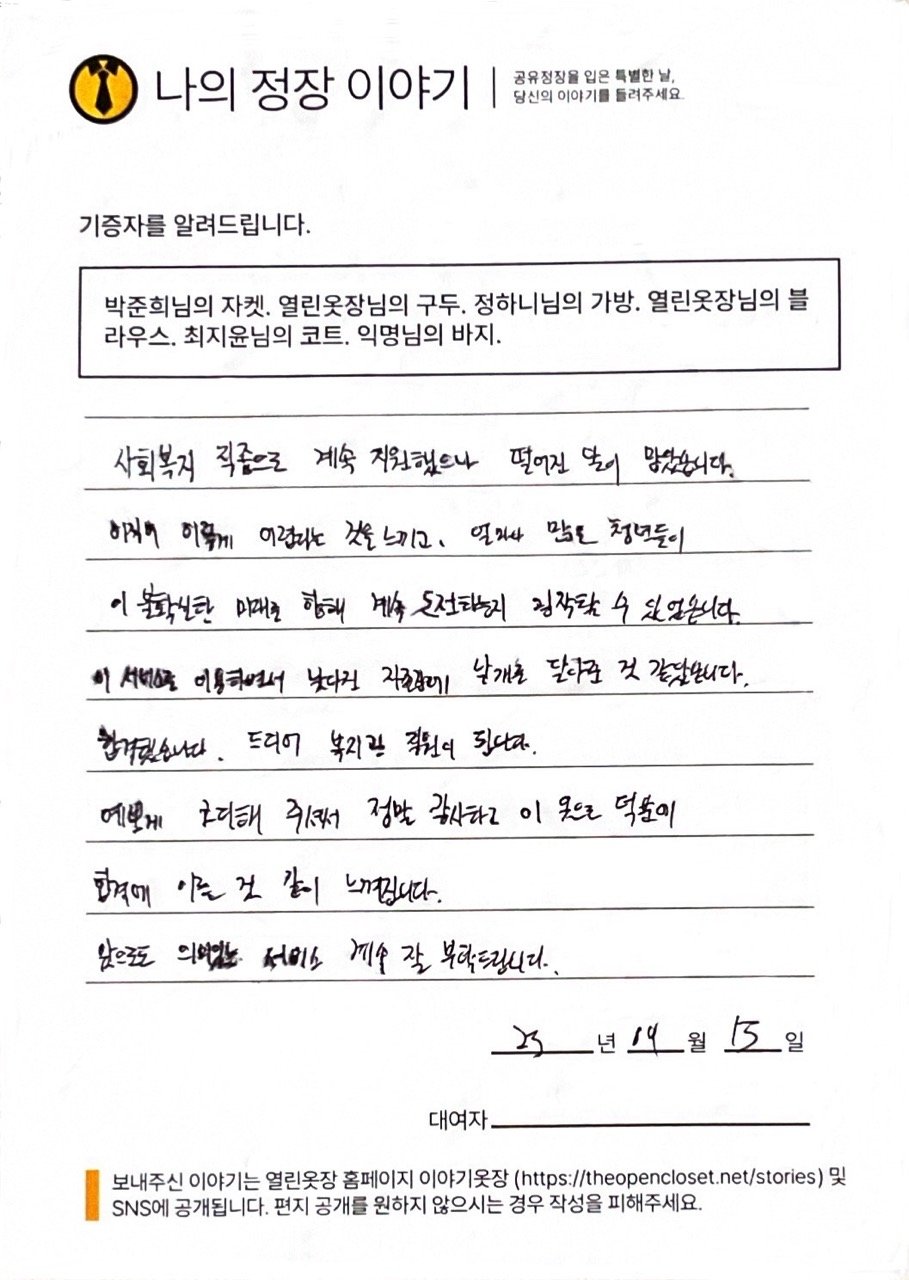 나의 정장 이야기
공유정장을 입은 특별한 날,
당신의 이야기를 들려주세요.
기증자를 알려드립니다.
박준희님의 자켓. 열린옷장님의 구두. 정하니님의 가방. 열린옷장님의 블
라우스. 최지윤님의 코트. 익명님의 바지.
사회복지 직종으로 계속 지원했으나 떨어진 달이 많았습니다.
이직이 이렇게 어렵다는 것을 느끼고, 얼마나 많은 청년들이
이 불확실한 미래를 향해 계속 도전하는지 짐작할 수 있었습니다.
이 서비스를 이용하면서 낮다진 날개를 달아준 것 같았습니다.
합격했습니다. 드디어 복지관 직원이 됩니다.
예쁘게 코디해 주셔서 정말 감사하고 이 옷으로 덕분에
합격에 이른 것 같이 느껴집니다.
앞으로도 의미있는 서비스 계속 잘 부탁드립니다.
23 년 04 월 15 일
대여자
보내주신 이야기는 열린옷장 홈페이지 이야기옷장 (https://theopencloset.net/stories) 및
SNS에 공개됩니다. 편지 공개를 원하지 않으시는 경우 작성을 피해주세요.